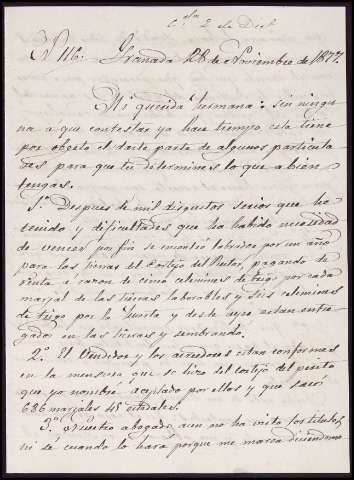 2 de Dicbre
Nº 116. Granada 28 de Noviembre de 1877.
Mi querida hermana: sin ningu
na a que contestar ya hace tiempo, esta tiene
por objeto el darte parte de algunos particula
res para que tu determines lo que a bien
tengas.
1º Despues de mil disgustos serios que he
tenido y dificultades que ha habido necesidad
de vencer por fin se incontró labrador por un año
para las tierras del Cortijo del Pintor, pagando de
renta a razon de cinco celemines de trigo por cada
marjal de las tierras laborables y seis celemines
de trigo por la huerta y desde ayer estan entre
gados en las tierras y sembrando.
2º El Vendedor y los acreedores estan conformes
en la mensura que se hizo del cortijo del perito
que yo nombré aceptado por ellos y que sacó
686 marjales 45 estadales.
3º Nuestro abogado aun no ha visto los titulos
ni sé cuando lo hará porque me marea diciendome